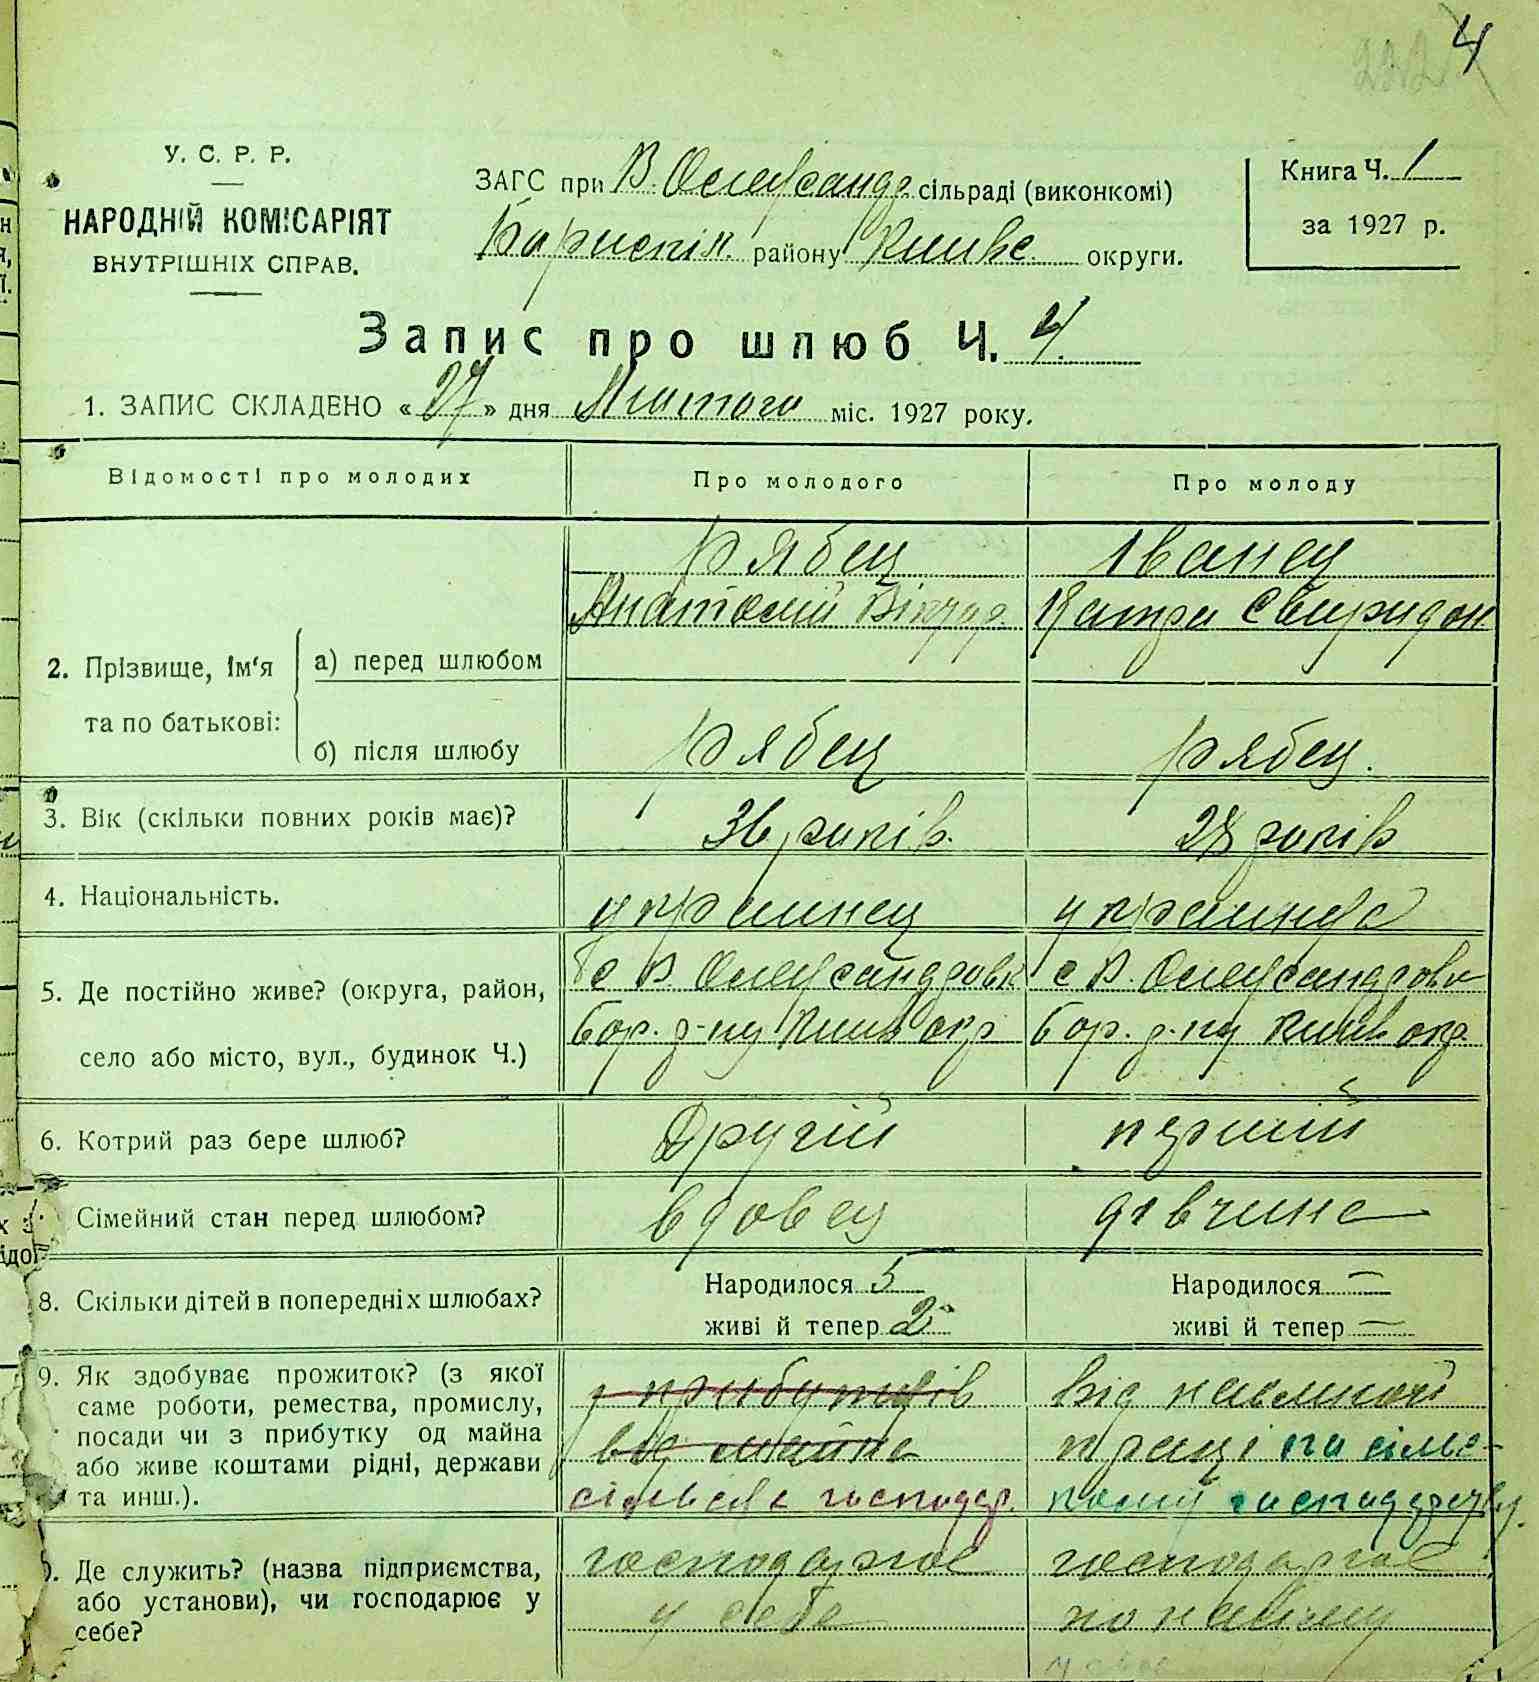 4
У. С. Р. Р.
НАРОДНІЙ КОМІСАРІЯТ
ВНУТРІШНІХ СПРАВ.
ЗАГС при В. Олександр. сільраді (виконкомі)
Бориспіл. району Київс. округи.
Книга Ч. 1
за 1927 р.
Запис про шлюб Ч. 4.
1. ЗАПИС СКЛАДЕНО «27» дня Лютого міс. 1927 року.
Відомості про молодих Про молодого Про молоду
Рябец Іванец
Анатолій Віктор. Катря Свиридон
2. Прізвище, ім'я та по батькові:
а) перед шлюбом
б) після шлюбу Рябец Рябец.
3. Вік (скільки повних років має)? 36 років. 28 років
4. Національність. украинец украинка
5. Де постійно живе? (округа, район, с В. Олександровк с В. Олександровк
село або місто, вул., будинок Ч.) Бор. р-ну Київ окр Бор. р-ну Київ окр.
6. Котрий раз бере шлюб? Другий перший
Сімейний стан перед шлюбом? вдовец дівчина
8. Скільки дітей в попередніх шлюбах? Народилося 5 Народилося —
живі й тепер 2 живі й тепер —
9. Як здобуває прожиток? (з якої з прибутків від наємної
саме роботи, ремества, промислу,
посади чи з прибутку од майна від майна праці по сільс-
або живе коштами рідні, держави
та инш.). сільськ господар. кому господарству.
Де служить? (назва підприємства, господарює господарює
або установи), чи господарює у у себе по найму
себе?